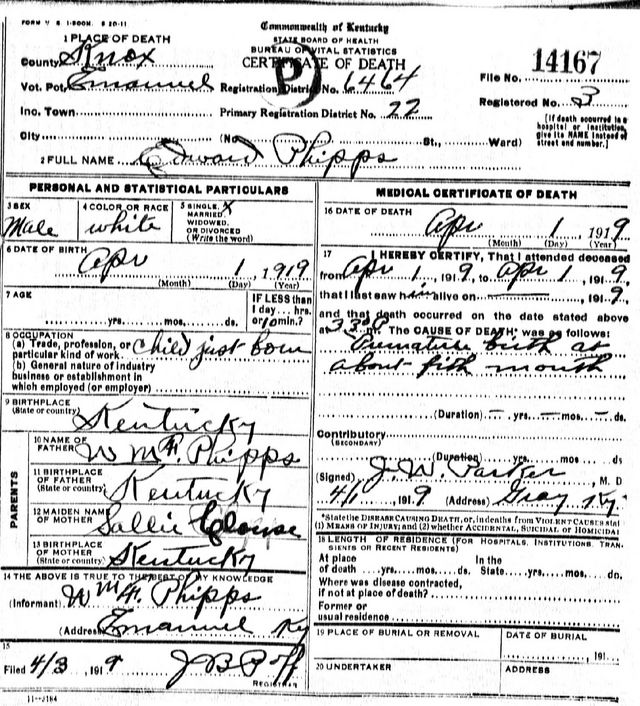 FORM V. S. 1-500M. 5 20-11
Commonwealth of Kentucky
STATE BOARD OF HEALTH
BUREAU OF VITAL STATISTICS
CERTIFICATE OF DEATH
P
14167
File No.
Registered No. 3
[If death occurred in a hospital or institution, give its NAME instead of street and number.]
1 PLACE OF DEATH
County Knox
Vot. Pct. Emanuel Registration District No. 1464
Inc. Town Primary Registration District No. 22
City (No. St., Ward)
2 FULL NAME Edward Phipps
PERSONAL AND STATISTICAL PARTICULARS
3 SEX Male
4 COLOR OR RACE white
5 SINGLE, X
MARRIED,
WIDOWED,
OR DIVORCED
(Write the word)
6 DATE OF BIRTH Apr 1, 1919
(Month) (Day) (Year)
7 AGE
yrs. mos. ds.
IF LESS than
1 day... hrs.
or 10 min.?
8 OCCUPATION
(a) Trade, profession, or particular kind of work. child just born
(b) General nature of industry
business or establishment in
which employed (or employer)
9 BIRTHPLACE
(State or country) Kentucky
PARENTS
10 NAME OF
FATHER Wm F. Phipps
11 BIRTHPLACE
OF FATHER
(State or country) Kentucky
12 MAIDEN NAME
OF MOTHER Sallie
13 BIRTHPLACE
OF MOTHER
(State or country) Kentucky
14 THE ABOVE IS TRUE TO THE BEST OF MY KNOWLEDGE
(Informant) Wm F. Phipps
(Address) Emanuel Ky
15
Filed 4/3 1919 J B
REGISTRAR
11-3184
MEDICAL CERTIFICATE OF DEATH
16 DATE OF DEATH
Apr 1 1919
(Month) (Day) (Year)
17 I HEREBY CERTIFY, That I attended deceased
from Apr 1, 1919, to Apr 1, 1919,
that I last saw him alive on 1919,
and that death occurred on the date stated above
at m. The CAUSE OF DEATH* was as follows:
Premature birth at
about fifth month
(Duration) yrs. mos. ds.
Contributory
(SECONDARY)
(Duration) yrs. mos. ds
(Signed) J. W. Parker, M. D
4/1 1919 (Address) Gray Ky.
*State the DISEASE CAUSING DEATH, or, in deaths from VIOLENT CAUSES state
(1) MEANS OF INJURY; and (2) whether ACCIDENTAL, SUICIDAL or HOMICIDAL
18 LENGTH OF RESIDENCE (FOR HOSPITALS, INSTITUTIONS, TRANSIENTS OR RECENT RESIDENTS)
At place In the
of death yrs. mos. ds. State yrs. mos. ds.
Where was disease contracted,
if not at place of death?
Former or
usual residence
19 PLACE OF BURIAL OR REMOVAL
DATE OF BURIAL
191
20 UNDERTAKER
ADDRESS